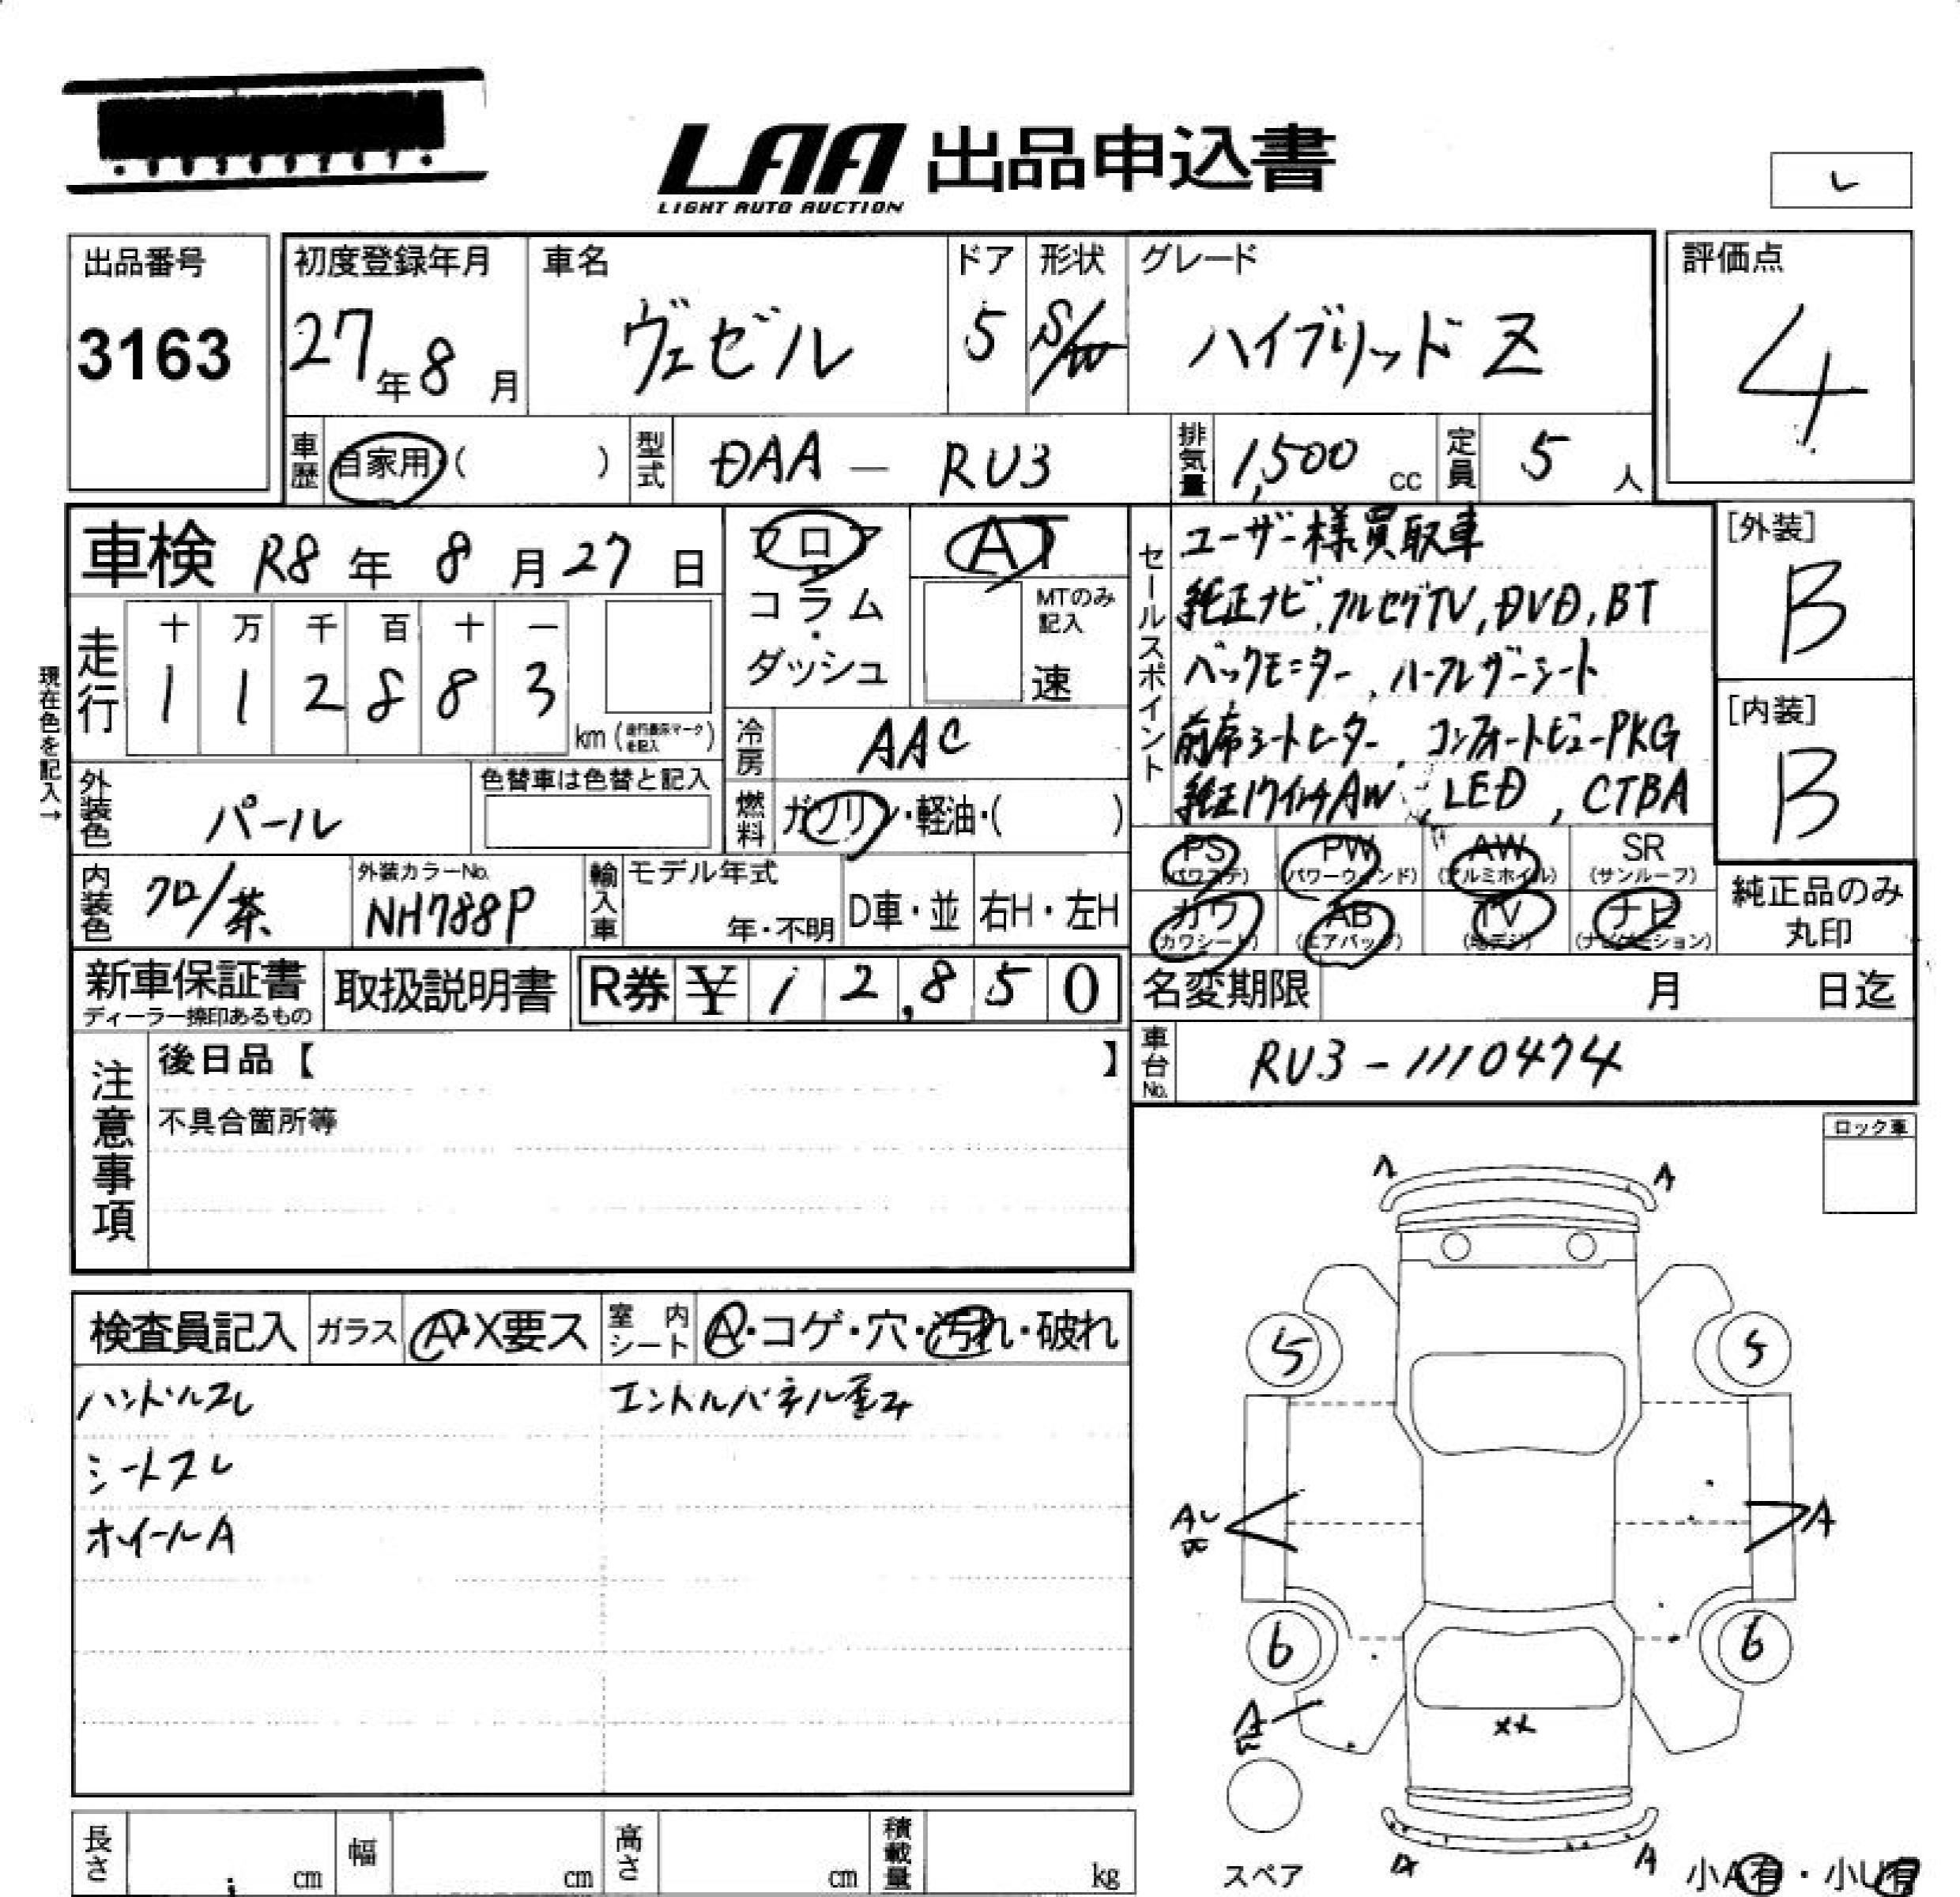 LAA 出品申込書
LIGHT AUTO AUCTION
レ
出品番号
3163
初度登録年月
27年8月
車名
ヴェゼル
ドア
5
形状
S/W
グレード
ハイブリッド Z
評価点
4
車歴
自家用 ( )
型式
DAA - RU3
排気量
1,500 cc
定員
5 人
車検 R8年8月27日
フロア・コラム・ダッシュ
AT
MTのみ記入
速
セールスポイント
ユーザー様買取車
純正ナビ、フルセグTV, DVD, BT
バックモニター、ハーフレザーシート
前席シートヒーター、コンフォートビューPKG
純正17インチAW LED, CTBA
[外装]
B
[内装]
B
現在色を記入→
走行
十 万 千 百 十 一
1 1 2 8 8 3
km (走行表示マークを記入)
冷房
AAC
外装色
パール
色替車は色替と記入
燃料
ガソリン・軽油・( )
PS (パワステ)
PW (パワーウィンド)
AW (アルミホイル)
SR (サンルーフ)
カワ (カワシート)
AB (エアバッグ)
TV (地デジ)
ナビ (ナビゲーション)
純正品のみ丸印
内装色
クロ/茶
外装カラーNo.
NH788P
輸入車
モデル年式
年・不明
D車・並
右H・左H
新車保証書
ディーラー捺印あるもの
取扱説明書
R券 ¥ 12,850
名変期限 月 日迄
車台No.
RU3-1110474
注意事項
後日品【 】
不具合箇所等
ロック車
検査員記入
ガラス
A・X要ス
室内シート
A・コゲ・穴・汚れ・破れ
ハンドルスレ
エントルパネル歪み
シートスレ
ホイールA
A
A
5
5
A
A
6
6
XX
A
スペア
小A有・小U有
長さ cm
幅 cm
高さ cm
積載量 kg